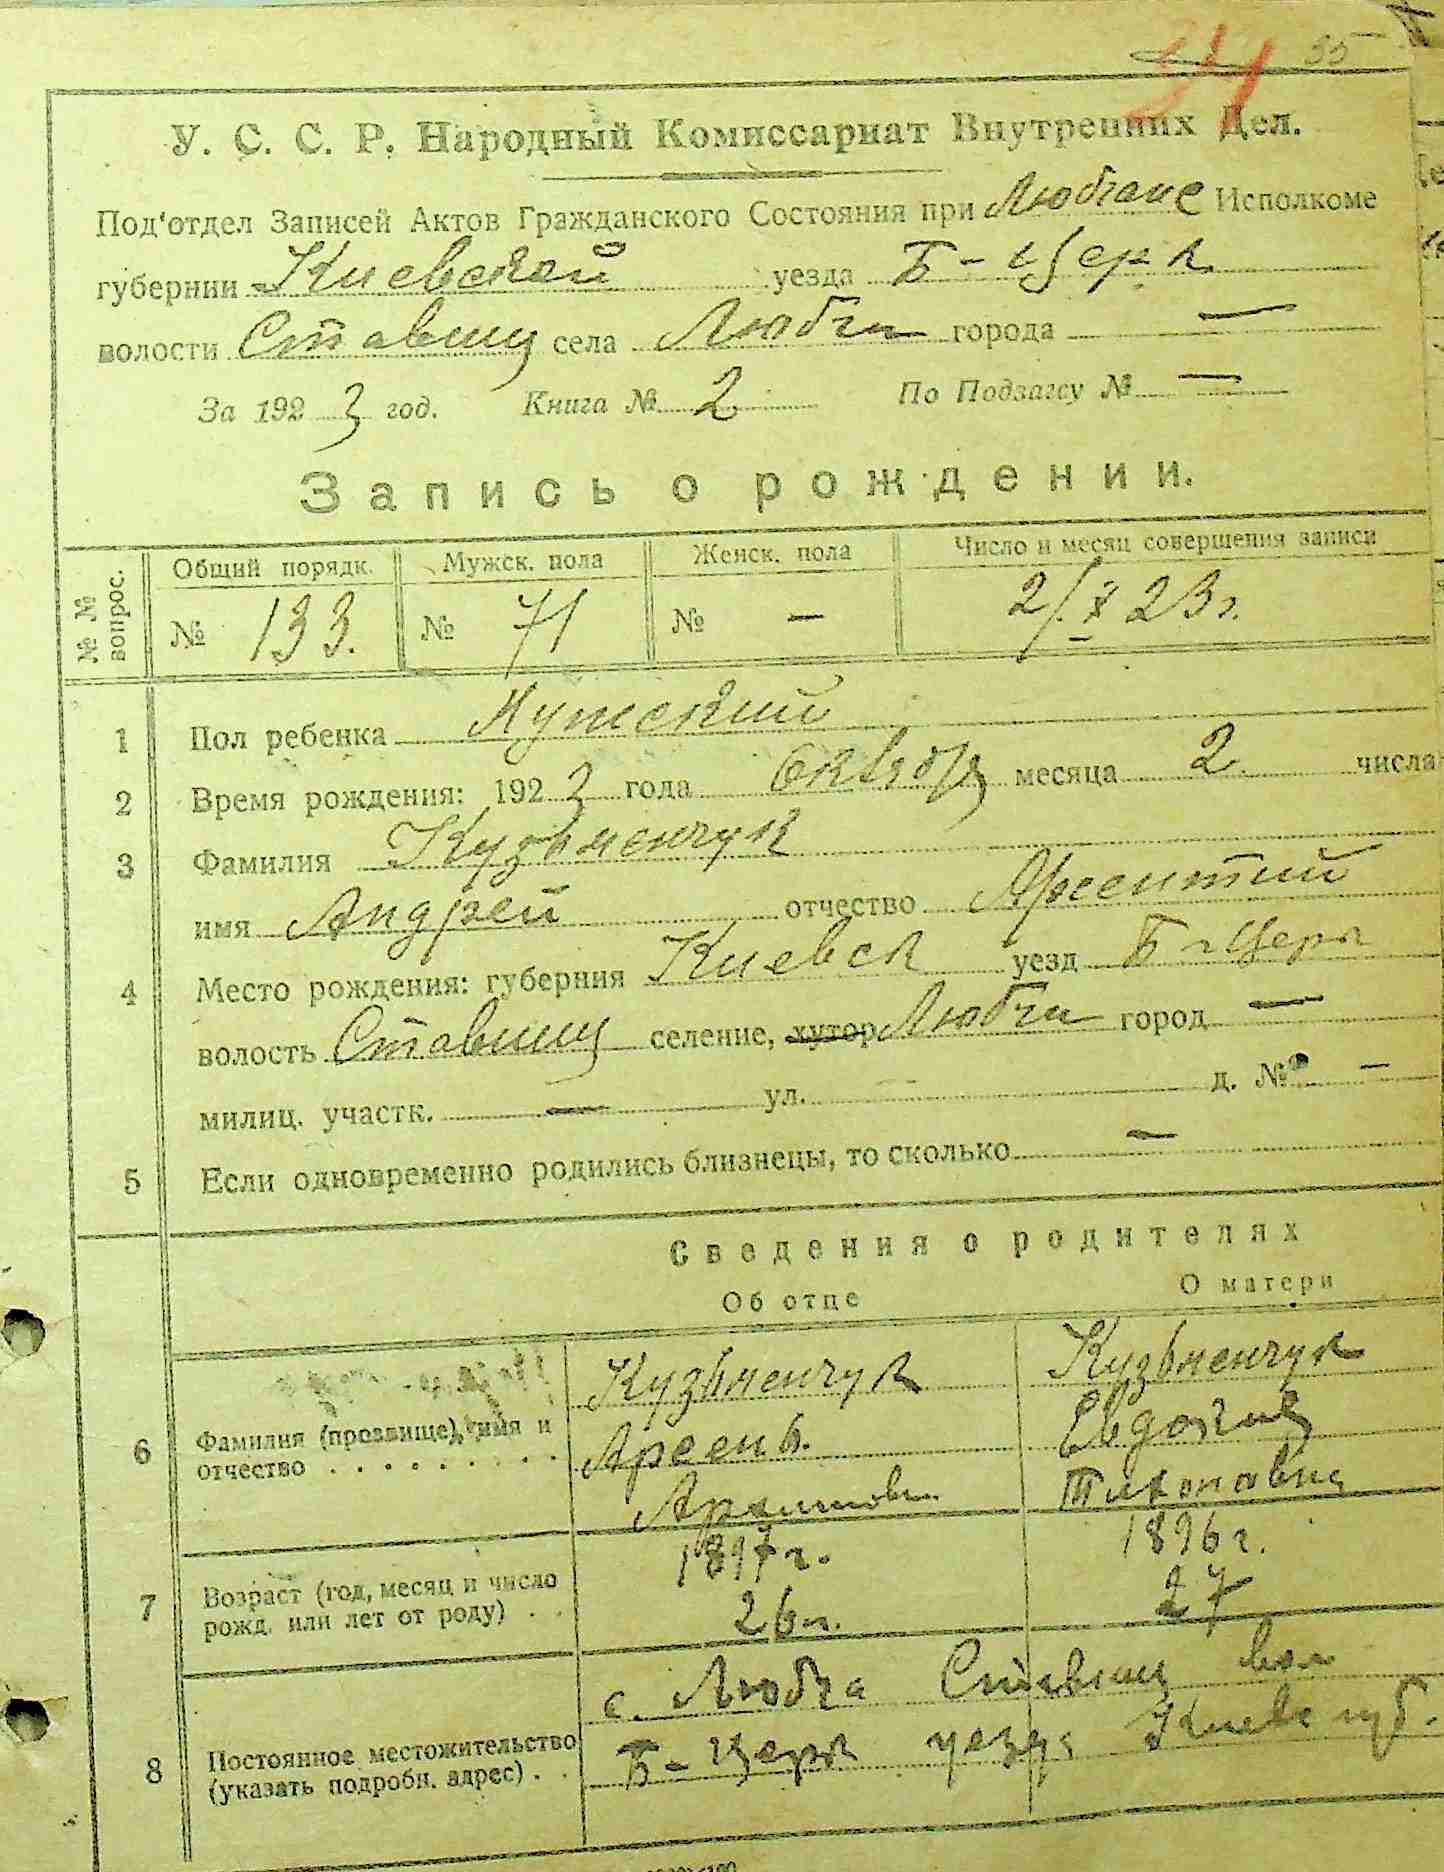 34 55
У. С. С. Р. Народный Комиссариат Внутренних Дел.
Под'отдел Записей Актов Гражданского Состояния при Исполкоме
губернии Киевской уезда Б-Церк
волости Ставищ села Любчи города —
За 1923 год. Книга № 2 По Подзагсу № —
Запись о рождении.
№ № вопрос. Общий порядк. Мужск. пола Женск. пола Число и месяц совершения записи
№ 133. № 71 № — 2/X 23 г.
1 Пол ребенка Мужский
2 Время рождения: 1923 года Октября месяца 2 числа
3 Фамилия Кузьменчук
имя Андрей отчество Арсентий
4 Место рождения: губерния Киевск уезд Б-Церк
волость Ставищ селение, хутор Любчи город —
милиц. участк. — ул. д. № —
5 Если одновременно родились близнецы, то сколько —
Сведения о родителях
Об отце О матери
Кузьменчук Кузьменчук
6 Фамилия (прозвище), имя и Арсень Евдокия
отчество . . . . . . . . . Тихоновна
1897 г. 1896 г.
7 Возраст (год, месяц и число
рожд. или лет от роду) . . 26 л. 27
с. Любча Ставищ вол
8 Постоянное местожительство Б-Церк уезда Киевс губ.
(указать подробн. адрес) . .